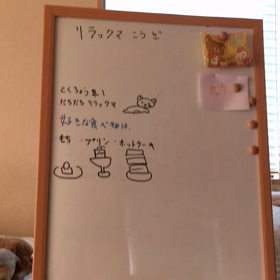 リラックマ こうざ
とくちょう集!
だらだらリラックマ
好きな食べ物は、
もち ・プリン ・ホットケーキ